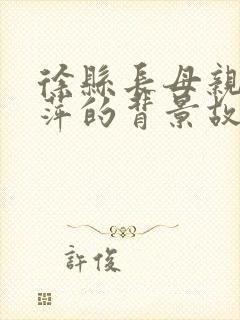 徐縣長母親
萍的背景故
許俊